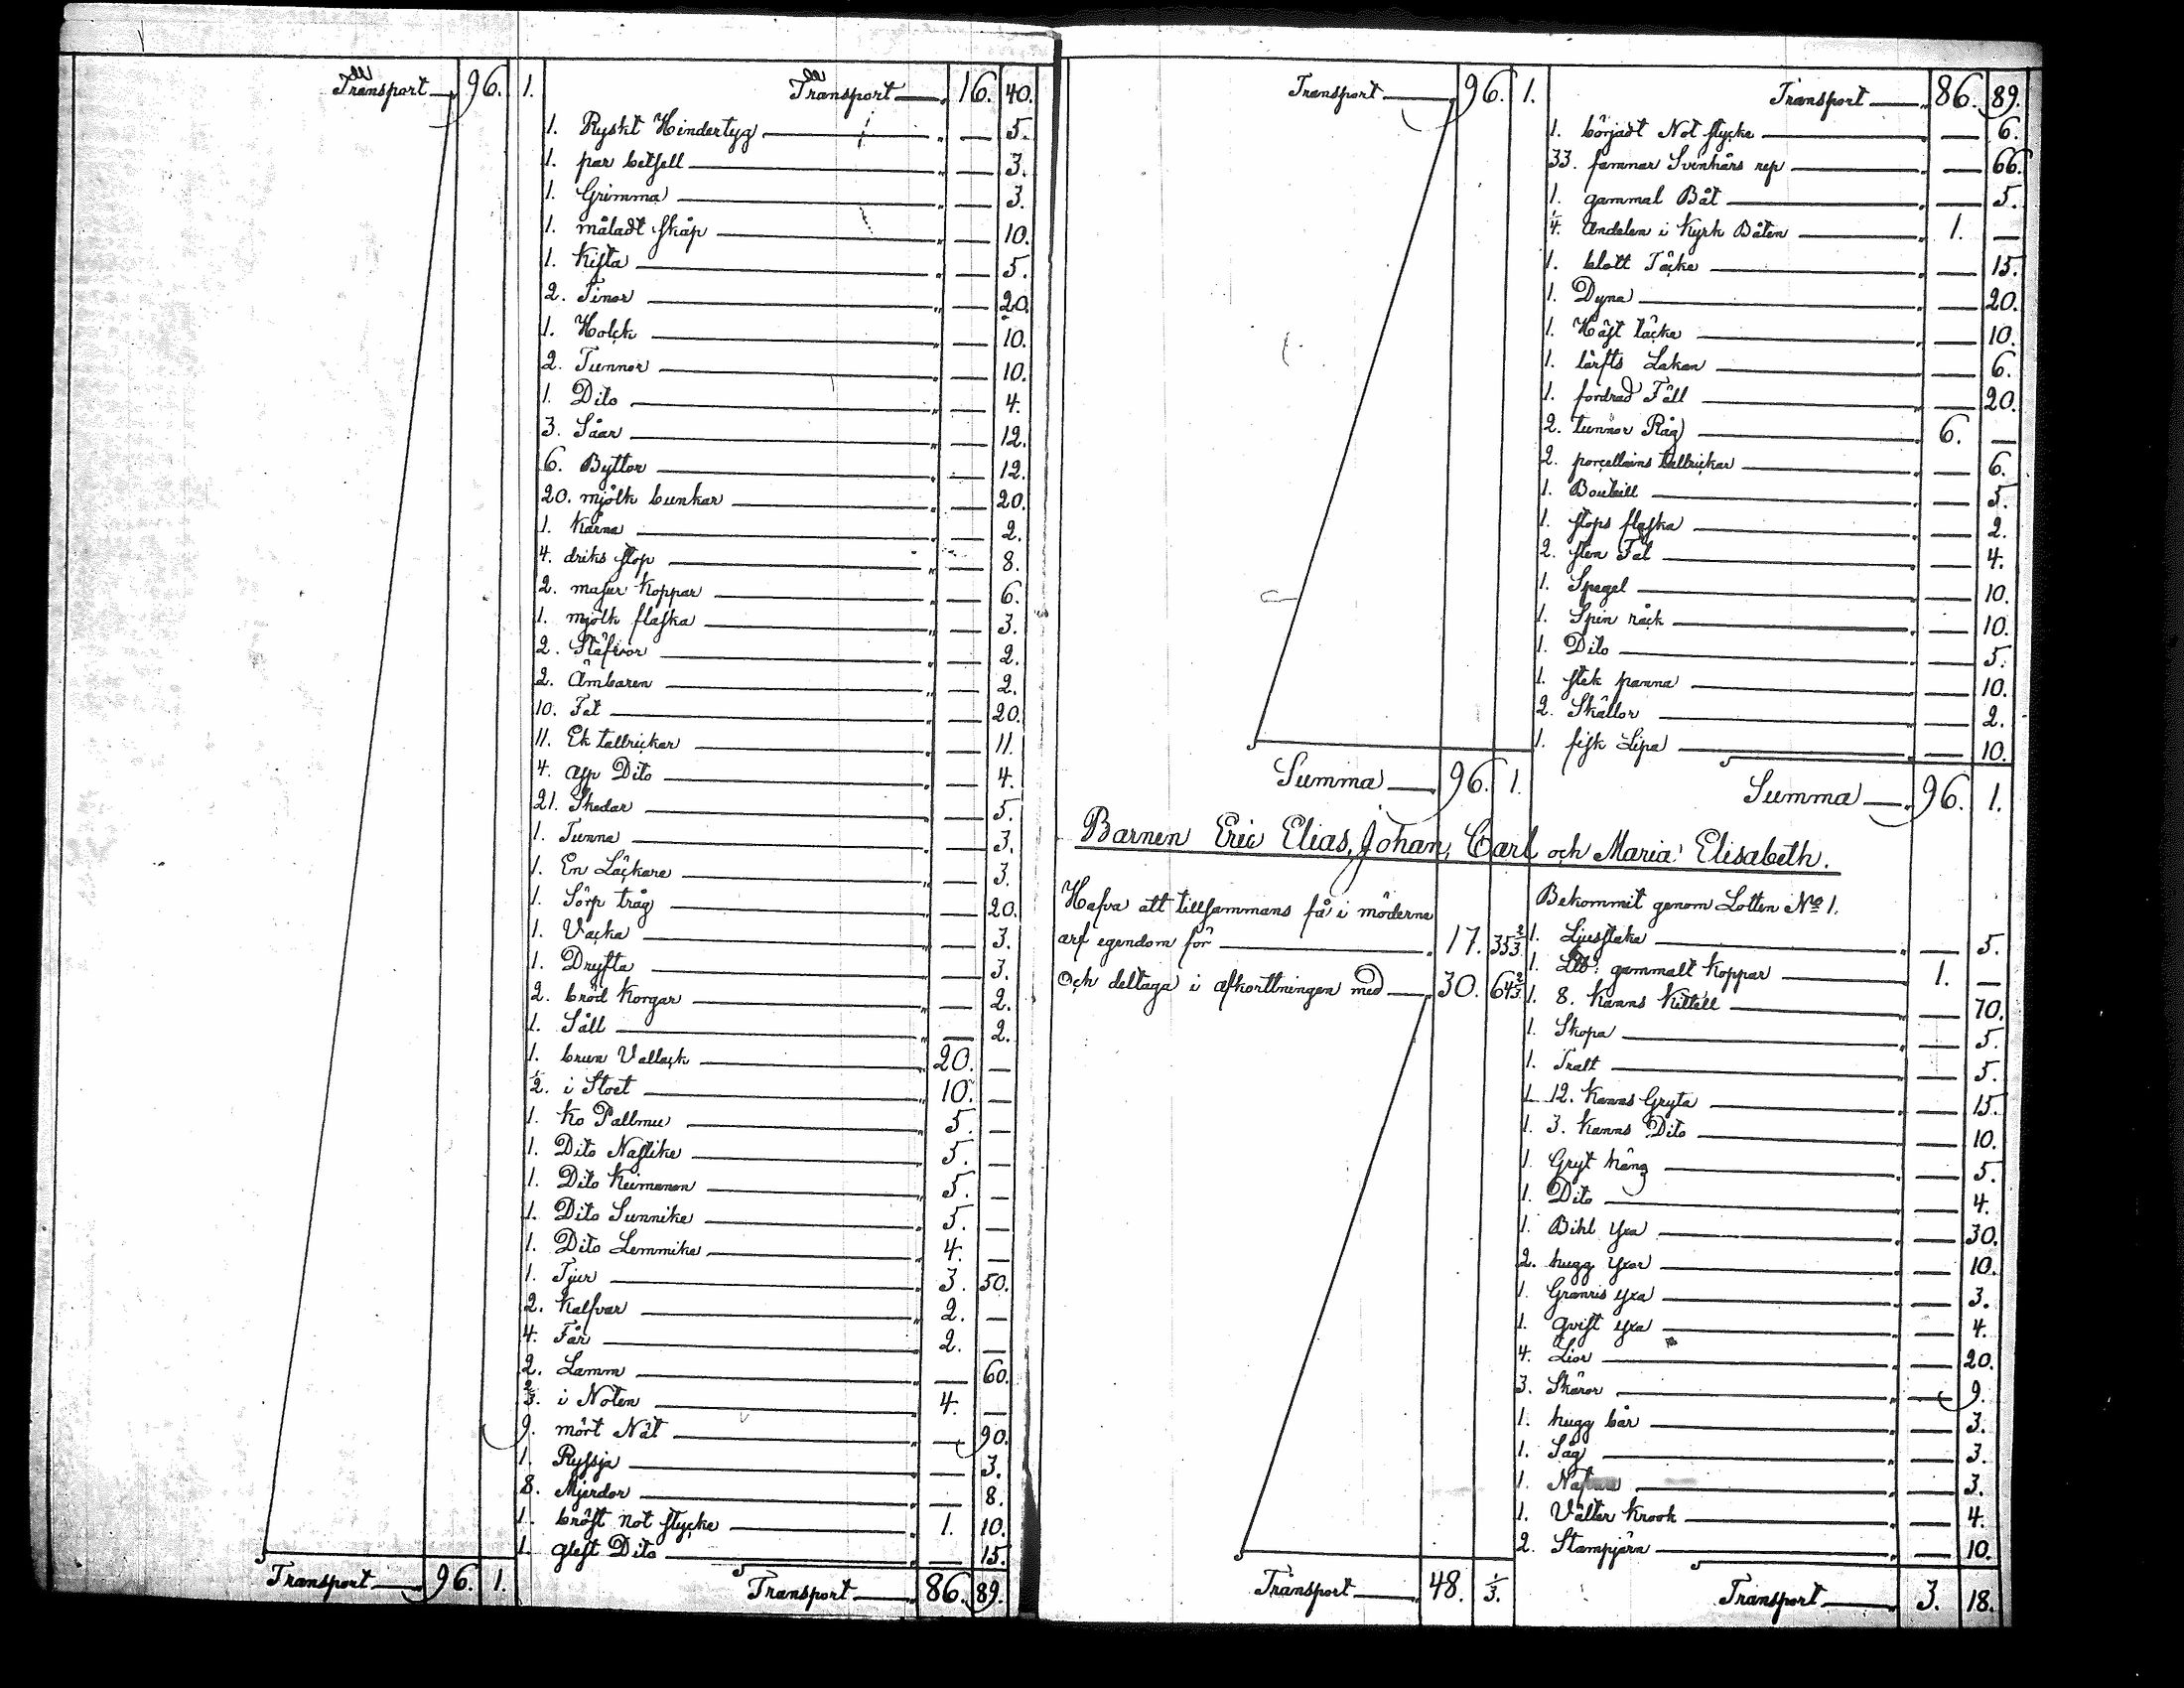 Transport 96. 1.
Transport 16. 40.
1. Ryskt Hindertyg — 5.
1. par betsell — 3.
1. Grimma — 3.
1. måladt skåp — 10.
1. Kista — 5.
2. Tinor — 20.
1. Holck — 10.
2. Tunnor — 10.
1. Dito — 4.
3. Såar — 12.
6. Byttor — 12.
20. mjölk bunkar — 20.
1. Kärna — 2.
4. driks stop — 8.
2. masur Koppar — 6.
1. mjölk flaska — 3.
2. Stäfvor — 2.
2. Ämbaren — 2.
10. Fat — 20.
11. Ek tallrickar — 11.
4. asp Dito — 4.
21. Skedar — 5.
1. Tunna — 3.
1. En Läckare — 3.
1. Sörp tråg — 20.
1. Vacka — 3.
1. Dryfta — 3.
2. bröd Korgar — 2.
1. Såll — 2.
1. brun Vallack 20. —
1/2. i Stoet 10. —
1. Ko Pallmu 5. —
1. Dito Nastike 5. —
1. Dito Keimanen 5. —
1. Dito Sunnike 5. —
1. Dito Lemmike 4. —
1. Tjur 3. 50.
2. Kalfvar 2. —
4. Får 2. —
2. Lamm — 60.
2/3. i Noten 4. —
9. mört Nät — 90.
1. Ryssja — 3.
8. Mjerdor — 8.
1. bröst not stycke 1. 10.
1. glest Dito — 15.
Transport 96. 1.
Transport 86. 89.
Transport 96. 1.
Transport 86. 89.
1. börjadt Not stycke — 6.
33. famnar Svinhårs rep — 66.
1. gammal Båt — 5.
1/4. Andelen i Kyrk Båten 1. —
1. blott Täcke — 15.
1. Dyna — 20.
1. Häst täcke — 10.
1. lärfts Lakan — 6.
1. fordrad Fäll — 20.
2. tunnor Råg 6. —
2. porcellains tallrickar — 6.
1. Bouteill — 5.
1. stops flaska — 2.
2. sten Fat — 4.
1. Spegel — 10.
1. Spin råck — 10.
1. Dito — 5.
1. stek panna — 10.
2. Skållor — 2.
1. fisk Lipa — 10.
Summa 96. 1.
Summa 96. 1.
Barnen Eric Elias, Johan, Carl och Maria Elisabeth.
Hafva att tillsammans få i möderne
arf egendom för 17. 35 2/3
Och deltaga i afkorttningen med 30. 64 2/3
Bekommit genom Lotten No 1.
1. Ljusstake — 5.
1. L℔: gammalt Koppar 1. —
1. 8. Kanns Kittell — 70.
1. Skopa — 5.
1. Tratt — 5.
1. 12. Kanns Gryta — 15.
1. 3. Kanns Dito — 10.
1. Gryt häng — 5.
1. Dito — 4.
1. Bihl Yxa — 30.
2. hugg Yxor — 10.
1. Granris yxa — 3.
1. qvist yxa — 4.
4. Lior — 20.
3. Skäror — 9.
1. hugg bår — 3.
1. Såg — 3.
1. — 3.
1. Välter Krook — 4.
2. Stampjärn — 10.
Transport 48. 1/3.
Transport 3. 18.